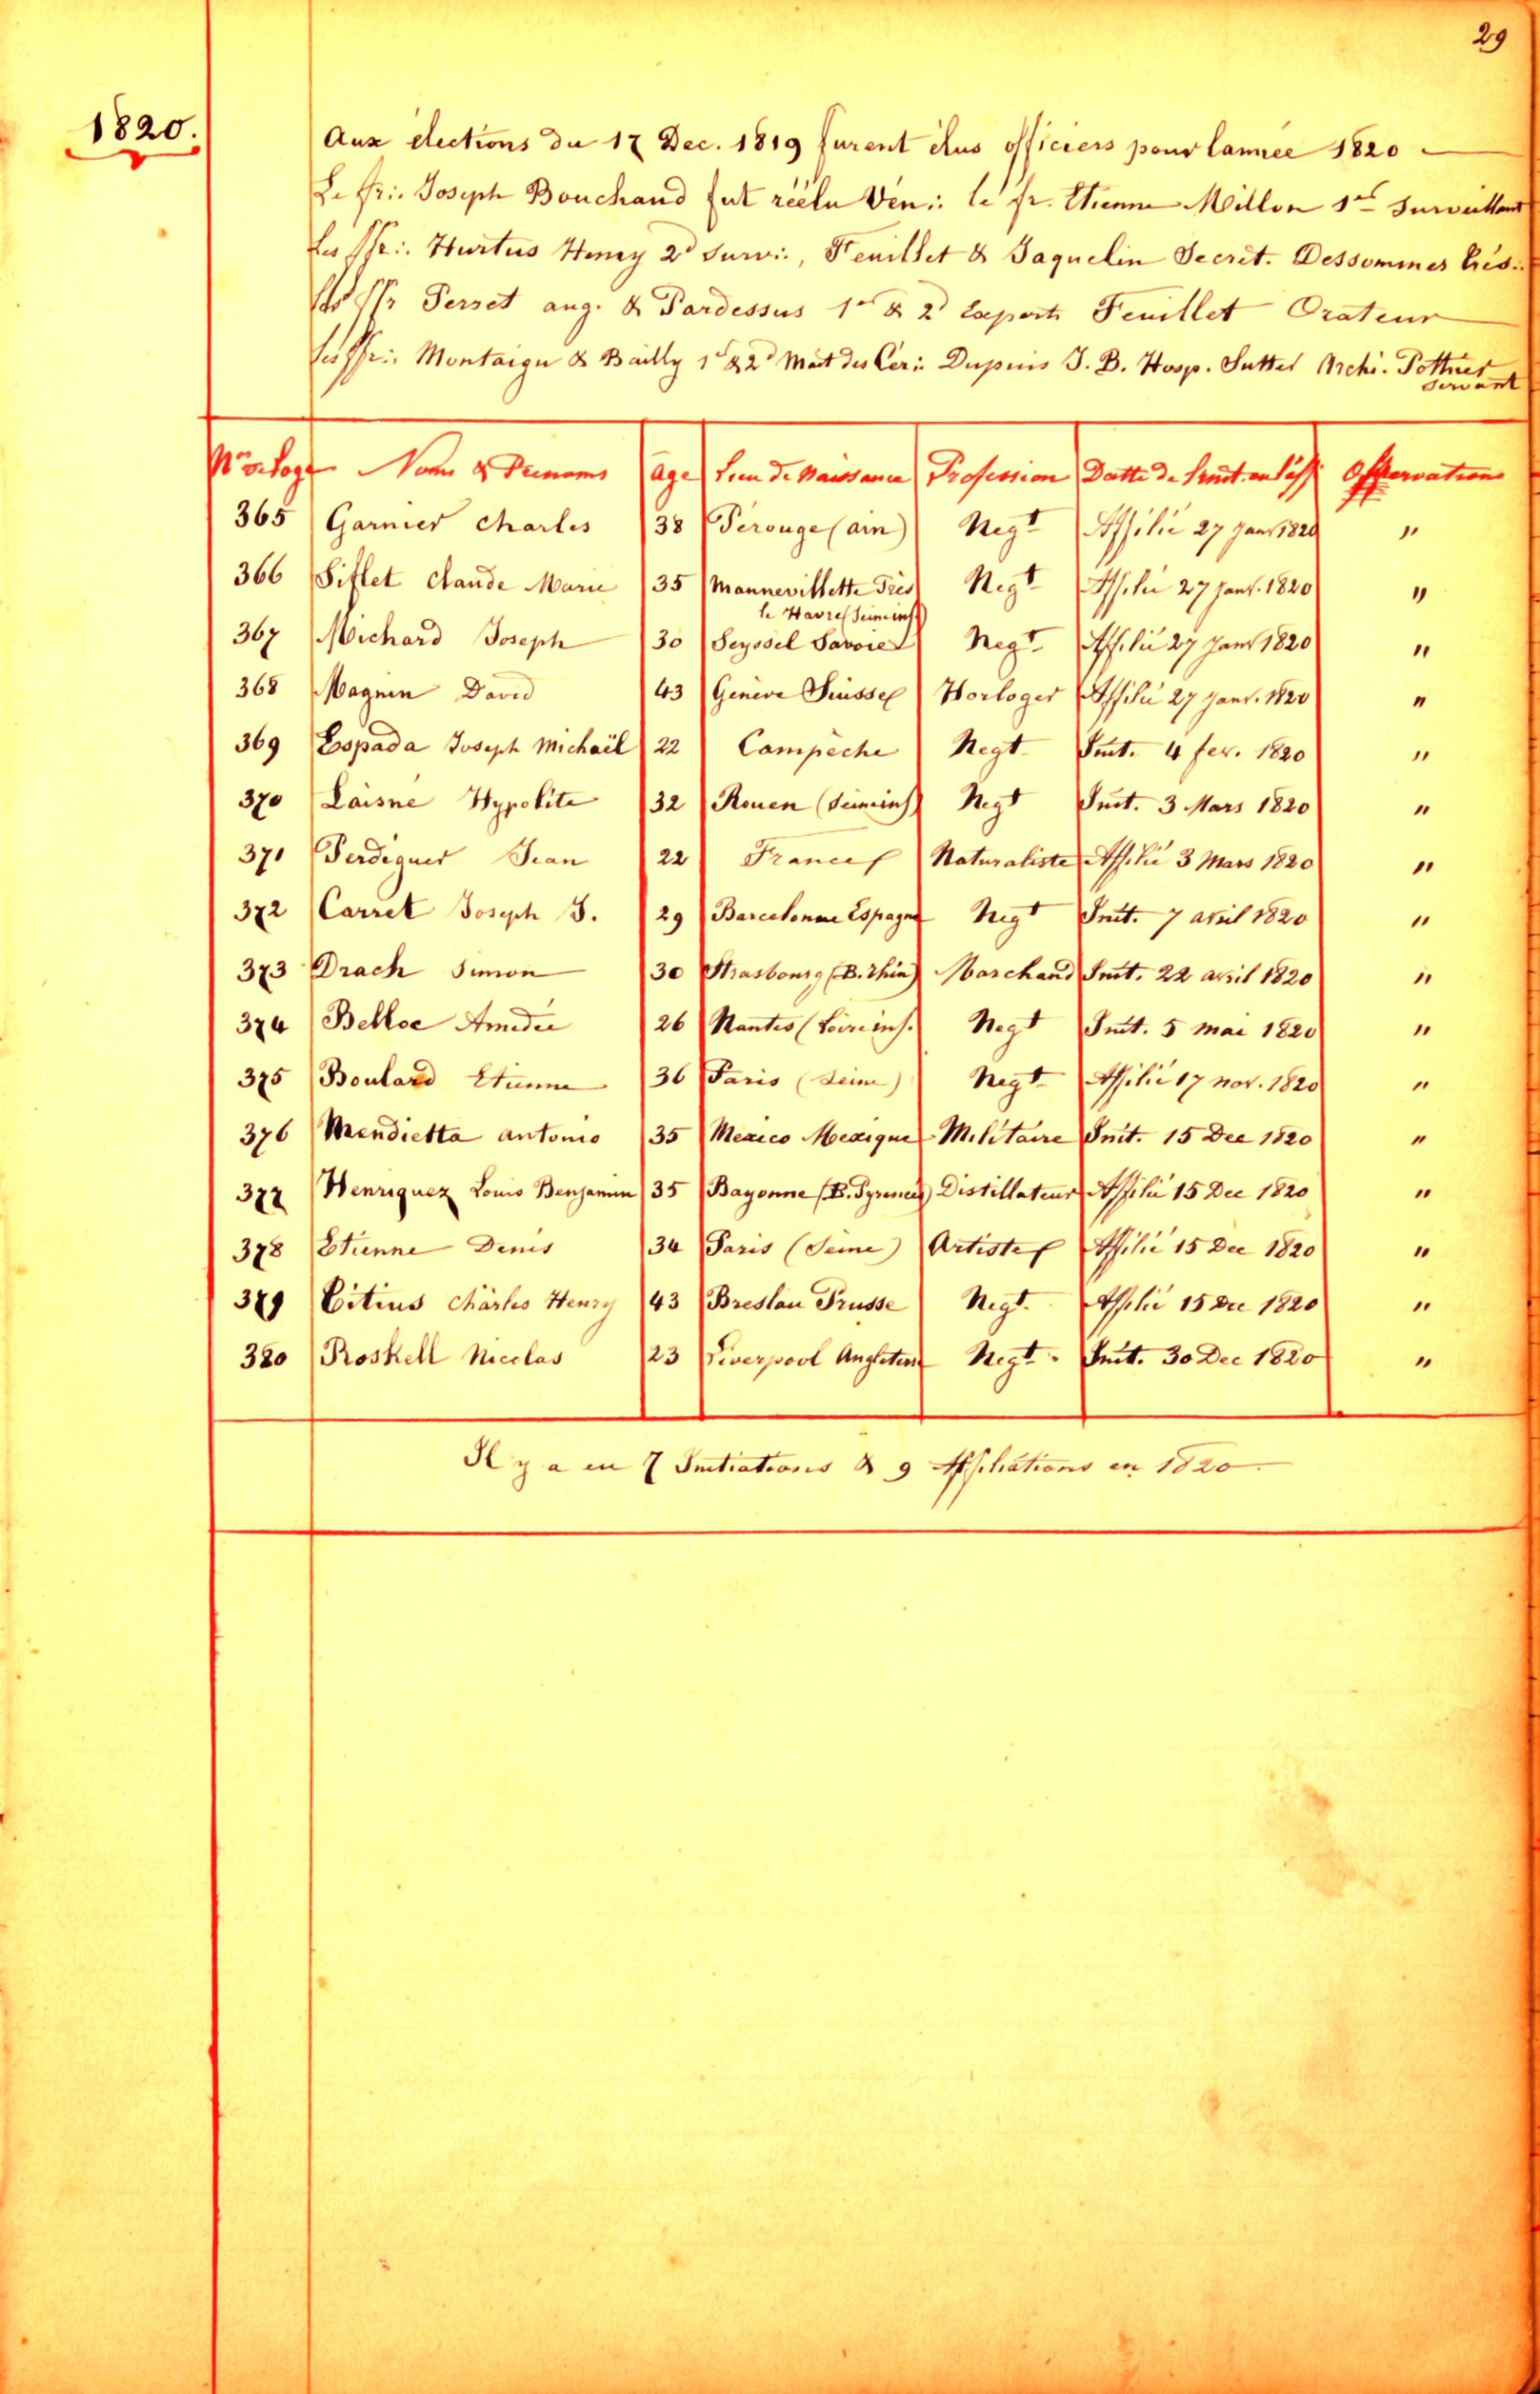 29
1820.
Aux élections du 17 Dec. 1819 furent élus officiers pour lannée 1820
Le fr∴ Joseph Bouchand fut réélu Vén∴ le fr. Etienne Millon 1er Surveillant
Les ffr∴ Hurtus Henry 2d Surv∴, Feuillet & Jaquelin Secrét. Dessommes Trés∴
les ffr Perset aug. & Pardessus 1er & 2d Experts Feuillet Orateur
les ffr∴ Montaigu & Bailly 1er & 2d Mait des Cer∴ Dupuis J. B. Hosp. Sutter Archi. Pottner
Servant
No de Loge Noms & Prenoms age Lieu de Naissance Profession Datte de Linit. ou daff Observations
365 Garnier Charles 38 Perouge (ain) Negt Affilié 27 janr 1820 "
366 Siflet Claude Marie 35 Mannevillette Près Negt Affilié 27 janr. 1820 "
le Havre (Seine inf)
367 Michard Joseph 30 Seyssel Savoie Negt Affilié 27 janr 1820 "
368 Magnin David 43 Genève Suisse Horloger Affilié 27 janr. 1820 "
369 Espada Joseph Michaël 22 Campêche Negt Init. 4 fev. 1820 "
370 Laisné Hypolite 32 Rouen (Seine inf) Negt Init. 3 Mars 1820 "
371 Perdiguer Jean 22 France Naturaliste Affilié 3 Mars 1820 "
372 Carret Joseph J. 29 Barcelonne Espagne Negt Init. 7 avril 1820 "
373 Drach Simon 30 Strasbourg (B. Rhin) Marchand Init. 22 avril 1820 "
374 Belloc Amedée 26 Nantes (Loire inf.) Negt Init. 5 mai 1820 "
375 Boulard Etienne 36 Paris (Seine) Negt Affilié 17 nov. 1820 "
376 Mendietta antonio 35 Mexico Mexique Militaire Init. 15 Dec 1820 "
377 Henriquez Louis Benjamin 35 Bayonne (B. Pyrenées) Distillateur Affilié 15 Dec 1820 "
378 Etienne Denis 34 Paris (Seine) Artiste Affilié 15 Dec 1820 "
379 Titius Charles Henry 43 Breslau Prusse Negt. Affilié 15 Dec 1820 "
380 Roskell Nicolas 23 Liverpool Angleterre Negt. Init. 30 Dec 1820 "
Il y a eu 7 Initiations & 9 Affiliations en 1820